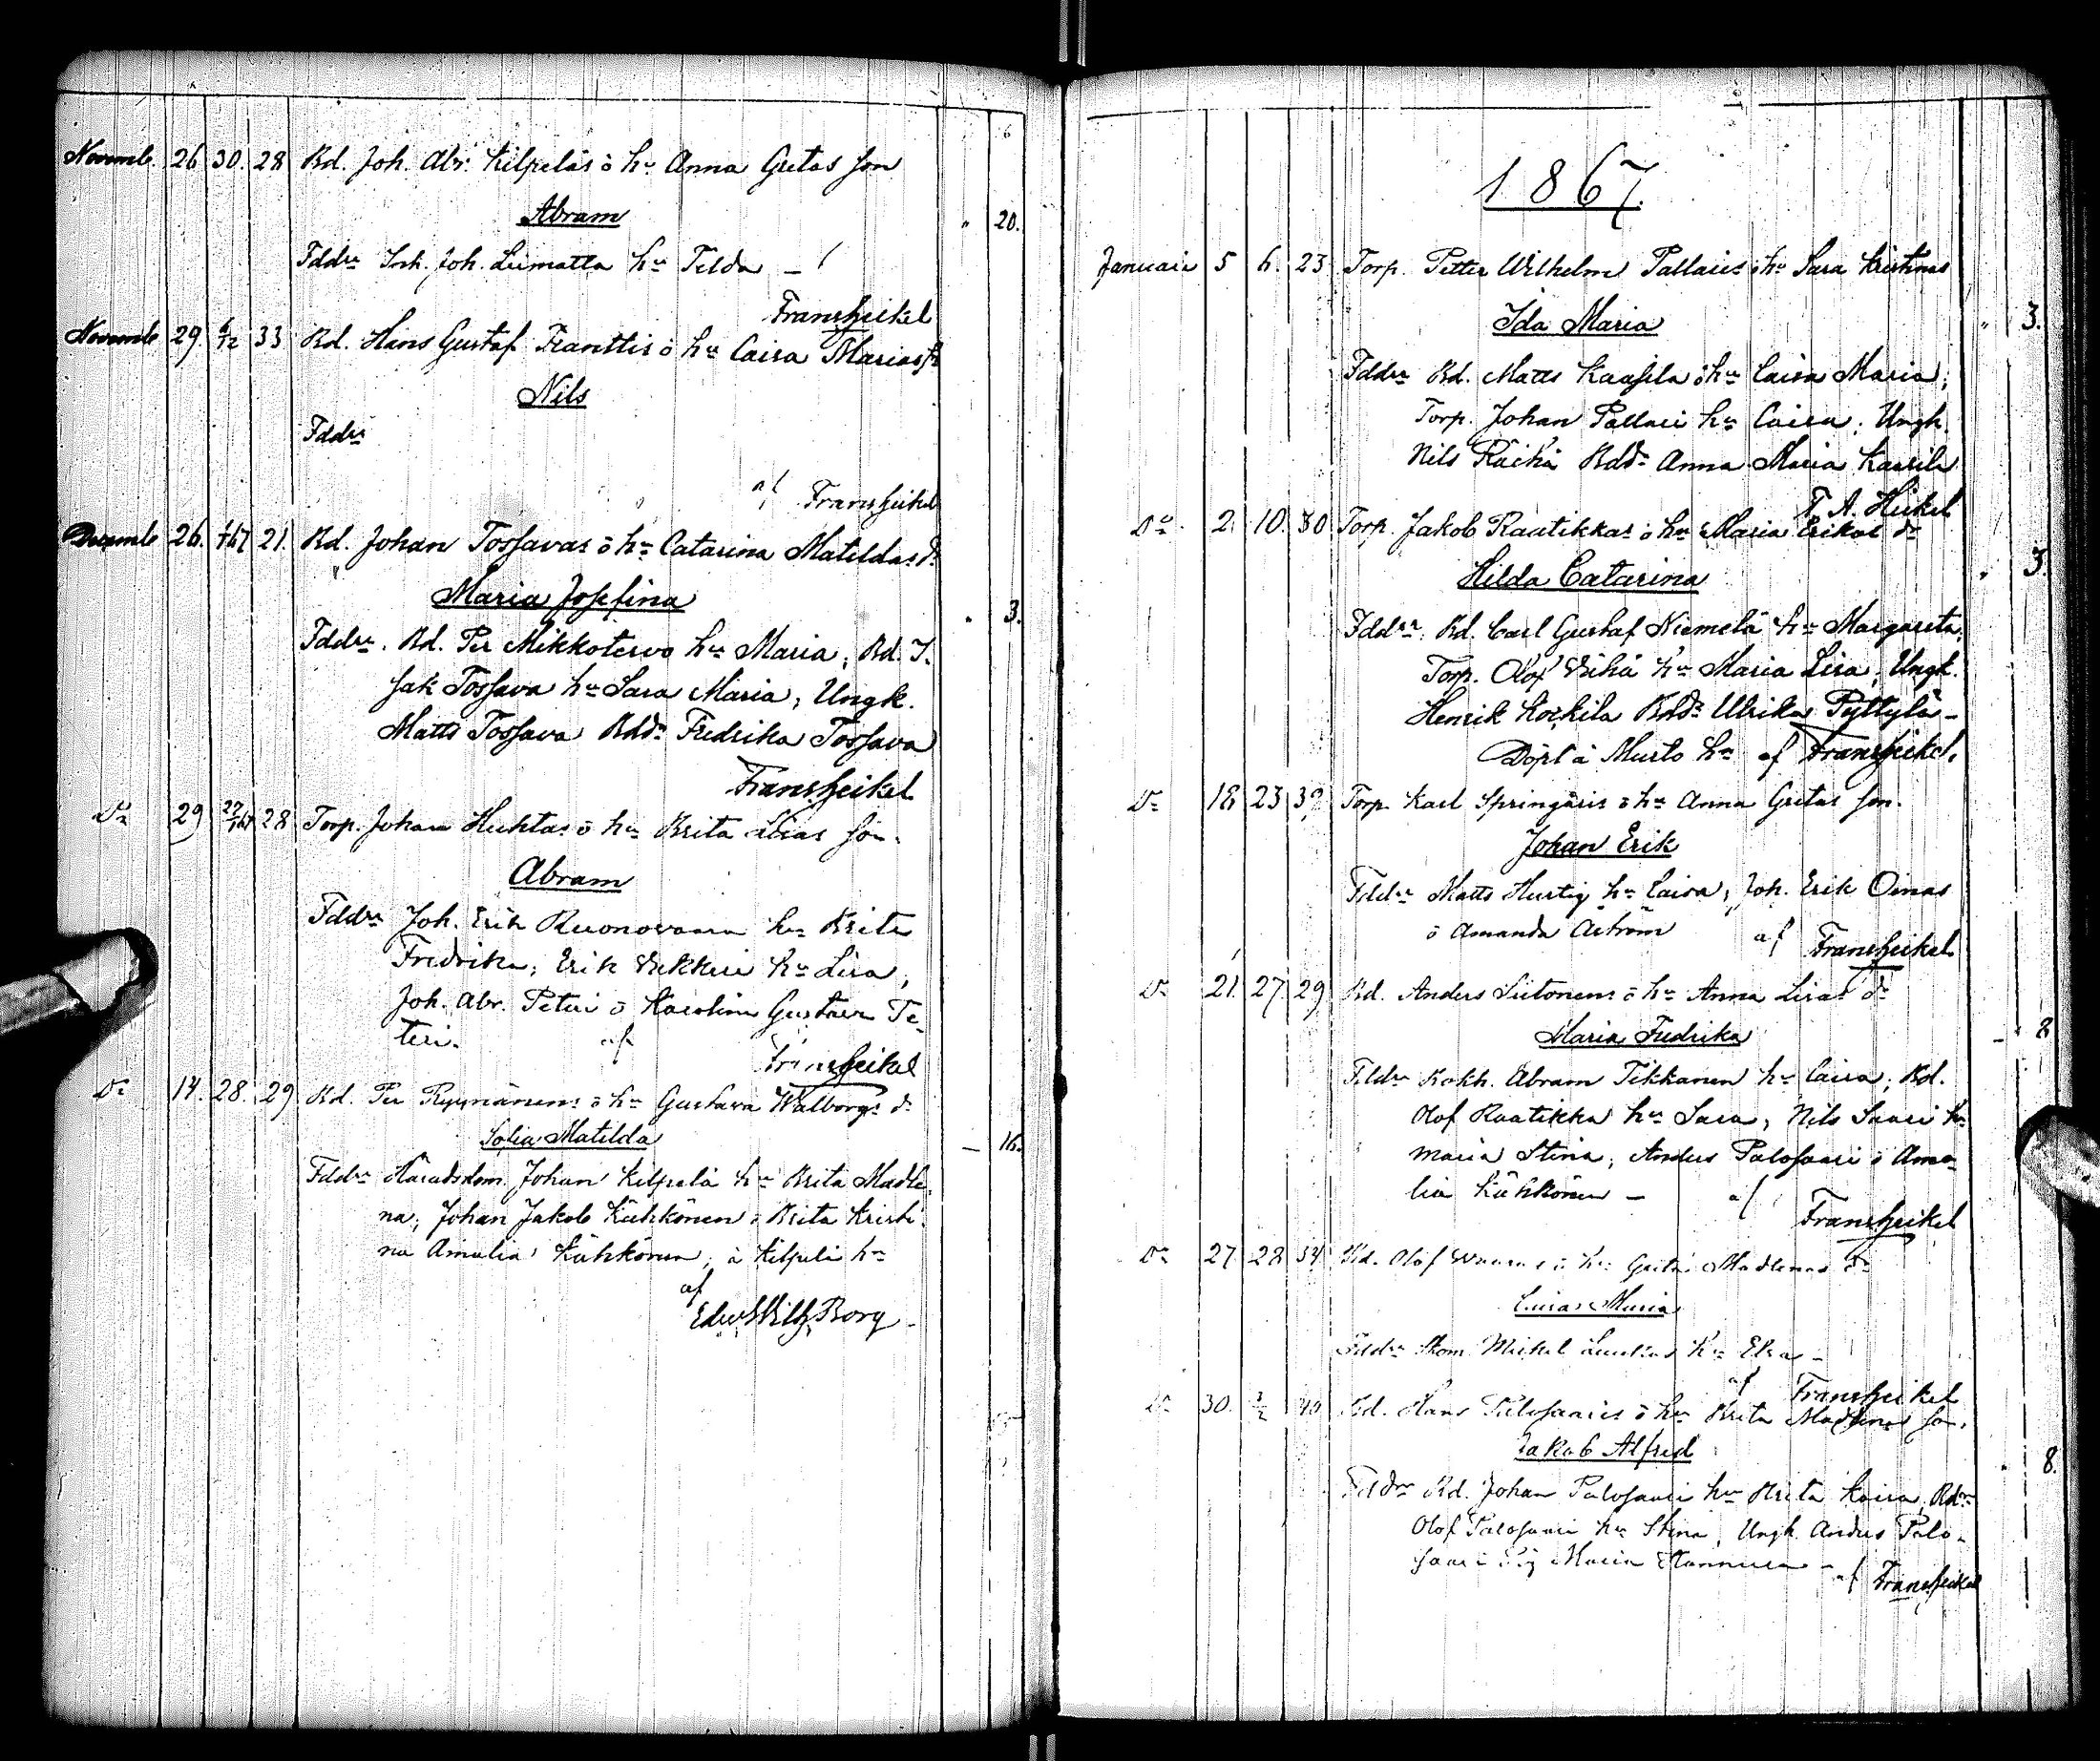 6
Novemb. 26 30. 28 Bd. Joh. Abr. Kilpeläs o hu Anna Gretas son
Abram
" 20.
Fddr Inh. Joh. Liimatta hu Tilda –
Frans Heikel
Novemb 29. 6/12 33 Bd. Hans Gustaf Franttis o hu Caisa Marias s.
Nils
Fddr
af Frans Heikel
Decemb 26. 1/67 21. Bd. Johan Tossavas o hu Catarina Matildas d.
Maria Josefina
" 3.
Fddr. Bd. Per Mikkotervo hu Maria; Bd. I-
sak Tossava hu Sara Maria; Ungk.
Matts Tossava Bdd. Fredrika Tossava
Frans Heikel
Do 29 27/1 67 28 Torp. Johan Huhtas o hu Brita Lisas son.
Abram
Fddr Joh. Erik Ruonovaara hu Brita
Fredrika; Erik hu Lisa;
Joh. Abr. Peteri o Karolina Gustava Pe-
teri. af
Frans Heikel
Do 14. 28. 29 Bd. Per Ryymänens o hu Gustava Walborgs d.
Sofia Matilda
– 16.
Fddr Häradsdom. Johan Kilpelä hu Brita Madle-
na; Johan Jakob Kähkönen o Brita Kristi-
na Amalia Kähkönen; å Kilpelä hn
af
Edw. Wilh. Borg –
1867.
Januari 5 6. 23 Torp. Petter Wilhelm Pallaris o hu Sara Kristinas
Ida Maria
" 3.
Fddr Bd. Matts Kaasila o hu Caisa Maria;
Torp. Johan Pallari hu Caisa; Ungk.
Nils Räihä Bdd. Anna Maria Kaasila
F. A. Heikel
Do 2. 10. 30 Torp. Jakob Raatikkas o hu Maria Erikas dr
Hilda Catarina
" 3.
Fddrr. Bd. Carl Gustaf Niemelä hu Margareta;
Torp. Olof hu Maria Lisa; Ungk.
Henrik Korkila Bdd. Ulrika Pyttylä –
Döpt å Musto hn af Frans Heikel.
Do 18 23 39 Torp. Karl Springaris o hu Anna Gretas son.
Johan Erik
Fddr Matts Hurtig hu Caisa; Joh. Erik Oinas
o Amanda Åström af Frans Heikel
Do 21. 27. 29 Bd. Anders Siitonens o hu Anna Lisas dr
Maria Fredrika
– 8
Fddr Bokh. Abram Tikkanen hu Caisa; Bd.
Olof Raatikka hu Sara; Nils Saari hu
Maria Stina; Anders Palosaari o Ama-
lia Kähkönen – af
Frans Heikel
Do 27. 28 34 Bd. Olof o hu Greta Madlenas dr
Caisa Maria
Fddr Skom. Mickel hu Elsa –
af Frans Heikel
Do 30. 3/2 40 Bd. Hans Palosaaris o hu Brita Madlenas son.
Jakob Alfred
" 8.
Fddr Bd. Johan Palosaari hu Brita Kaisa, Bdr
Olof Palosaari hu Stina; Ungk. Anders Palo-
saari Pig. Maria –
af Frans Heikel